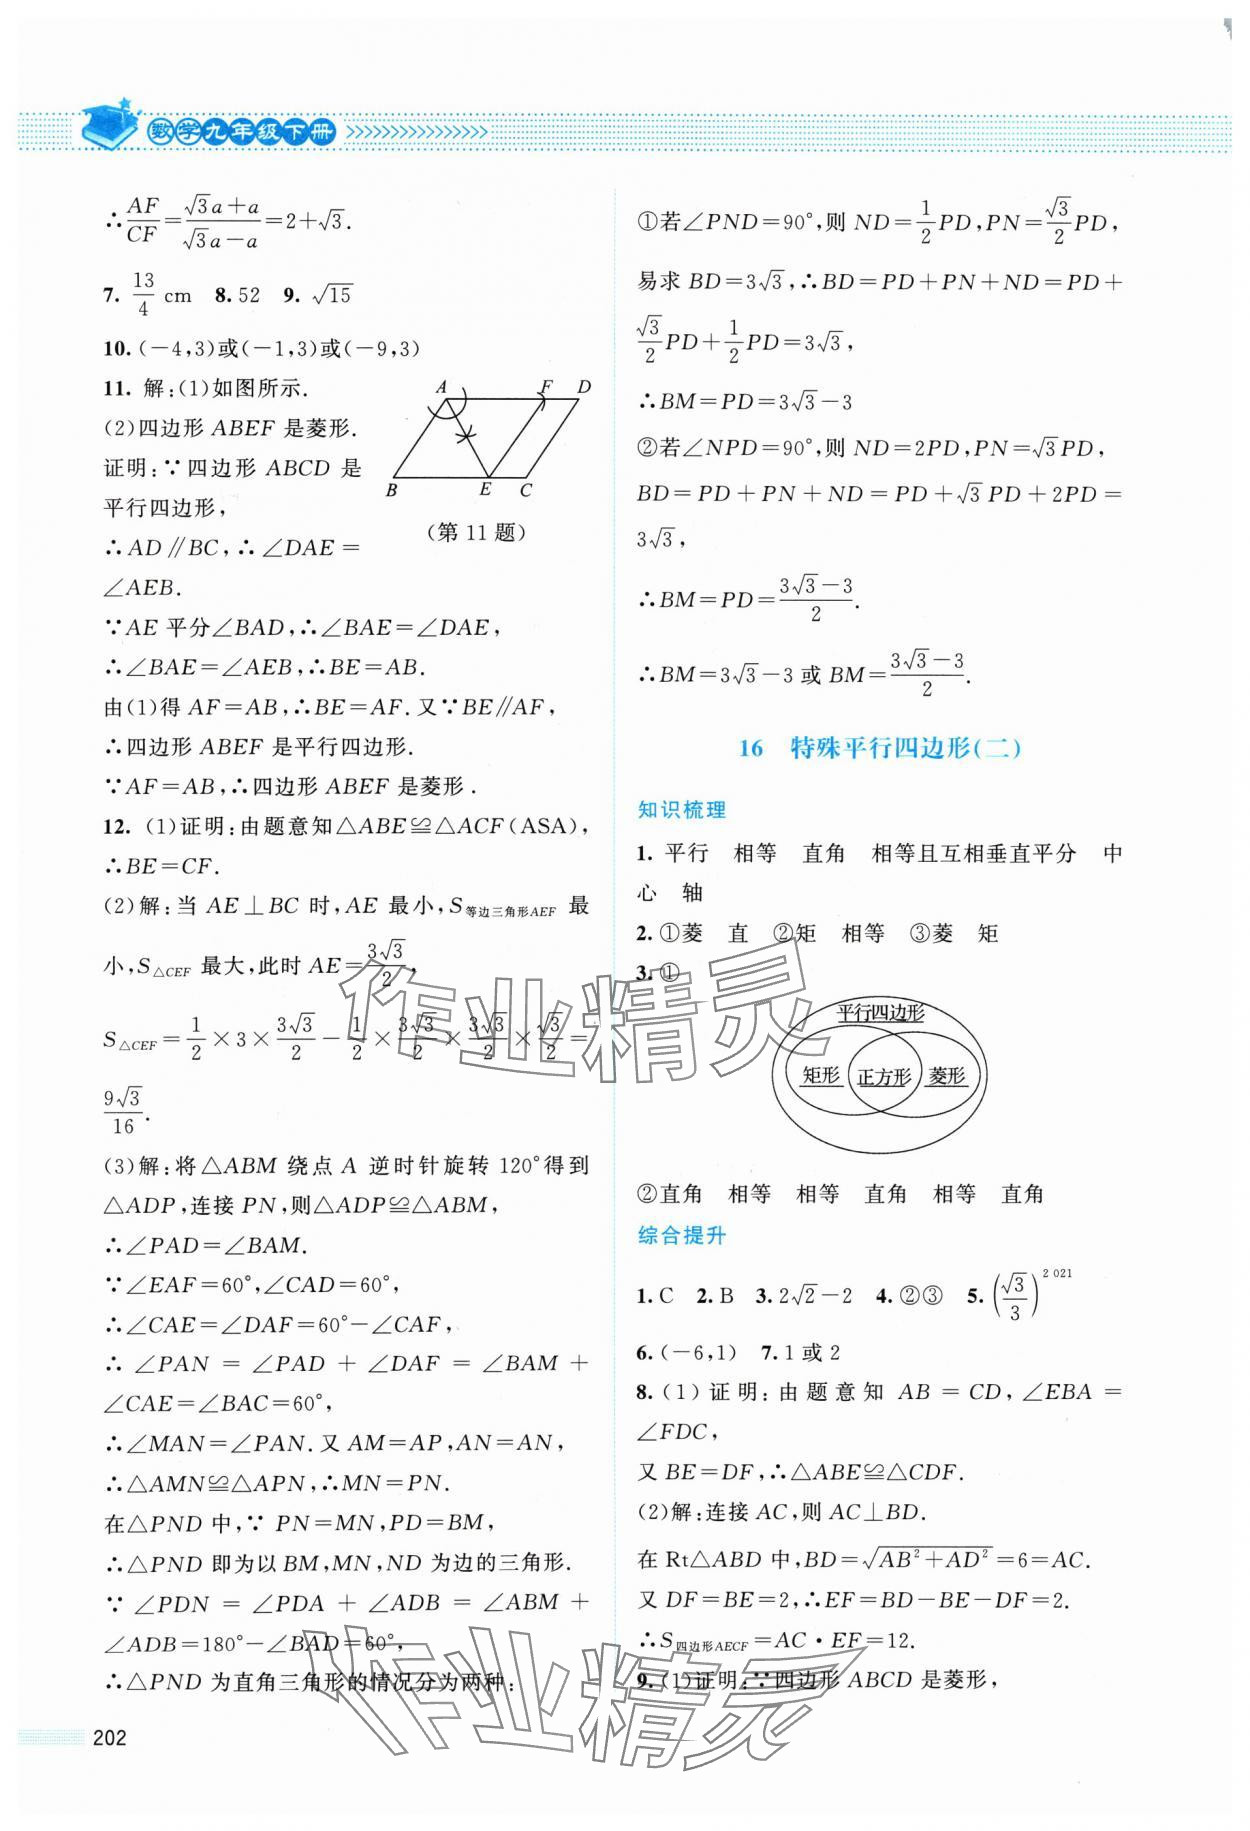 数学九年级下册
∴AF/CF=(√3a+a)/(√3a-a)=2+√3.
7. 13/4 cm 8. 52 9. √15
10. (-4,3)或(-1,3)或(-9,3)
11. 解:(1)如图所示.
(2)四边形 ABEF 是菱形.
证明:∵四边形 ABCD 是
平行四边形,
∴AD∥BC,∴∠DAE=
∠AEB.
A F D
B E C
(第 11 题)
∵AE 平分∠BAD,∴∠BAE=∠DAE,
∴∠BAE=∠AEB,∴BE=AB.
由(1)得 AF=AB,∴BE=AF. 又∵BE∥AF,
∴四边形 ABEF 是平行四边形.
∵AF=AB,∴四边形 ABEF 是菱形.
12. (1)证明:由题意知△ABE≌△ACF(ASA),
∴BE=CF.
(2)解:当 AE⊥BC 时,AE 最小,S等边三角形AEF 最
小,S△CEF 最大,此时 AE=3√3/2,
S△CEF=1/2×3×3√3/2-1/2×3√3/2×3√3/2×√3/2=
9√3/16.
(3)解:将△ABM 绕点 A 逆时针旋转 120°得到
△ADP,连接 PN,则△ADP≌△ABM,
∴∠PAD=∠BAM.
∵∠EAF=60°,∠CAD=60°,
∴∠CAE=∠DAF=60°-∠CAF,
∴∠PAN=∠PAD+∠DAF=∠BAM+
∠CAE=∠BAC=60°,
∴∠MAN=∠PAN. 又 AM=AP,AN=AN,
∴△AMN≌△APN,∴MN=PN.
在△PND 中,∵PN=MN,PD=BM,
∴△PND 即为以 BM,MN,ND 为边的三角形.
∵∠PDN=∠PDA+∠ADB=∠ABM+
∠ADB=180°-∠BAD=60°,
∴△PND 为直角三角形的情况分为两种:
①若∠PND=90°,则 ND=1/2PD,PN=√3/2PD,
易求 BD=3√3,∴BD=PD+PN+ND=PD+
√3/2PD+1/2PD=3√3,
∴BM=PD=3√3-3
②若∠NPD=90°,则 ND=2PD,PN=√3PD,
BD=PD+PN+ND=PD+√3PD+2PD=
3√3,
∴BM=PD=(3√3-3)/2.
∴BM=3√3-3 或 BM=(3√3-3)/2.
16 特殊平行四边形(二)
知识梳理
1. 平行 相等 直角 相等且互相垂直平分 中
心 轴
2. ①菱 直 ②矩 相等 ③菱 矩
3. ①
平行四边形
矩形 正方形 菱形
②直角 相等 相等 直角 相等 直角
综合提升
1. C 2. B 3. 2√2-2 4. ②③ 5. (√3/3)^2 021
6. (-6,1) 7. 1 或 2
8. (1)证明:由题意知 AB=CD,∠EBA=
∠FDC,
又 BE=DF,∴△ABE≌△CDF.
(2)解:连接 AC,则 AC⊥BD.
在 Rt△ABD 中,BD=√(AB²+AD²)=6=AC.
又 DF=BE=2,∴EF=BD-BE-DF=2.
∴S四边形AECF=AC·EF=12.
9. (1)证明:∵四边形 ABCD 是菱形,
202
作业精灵
作业精灵